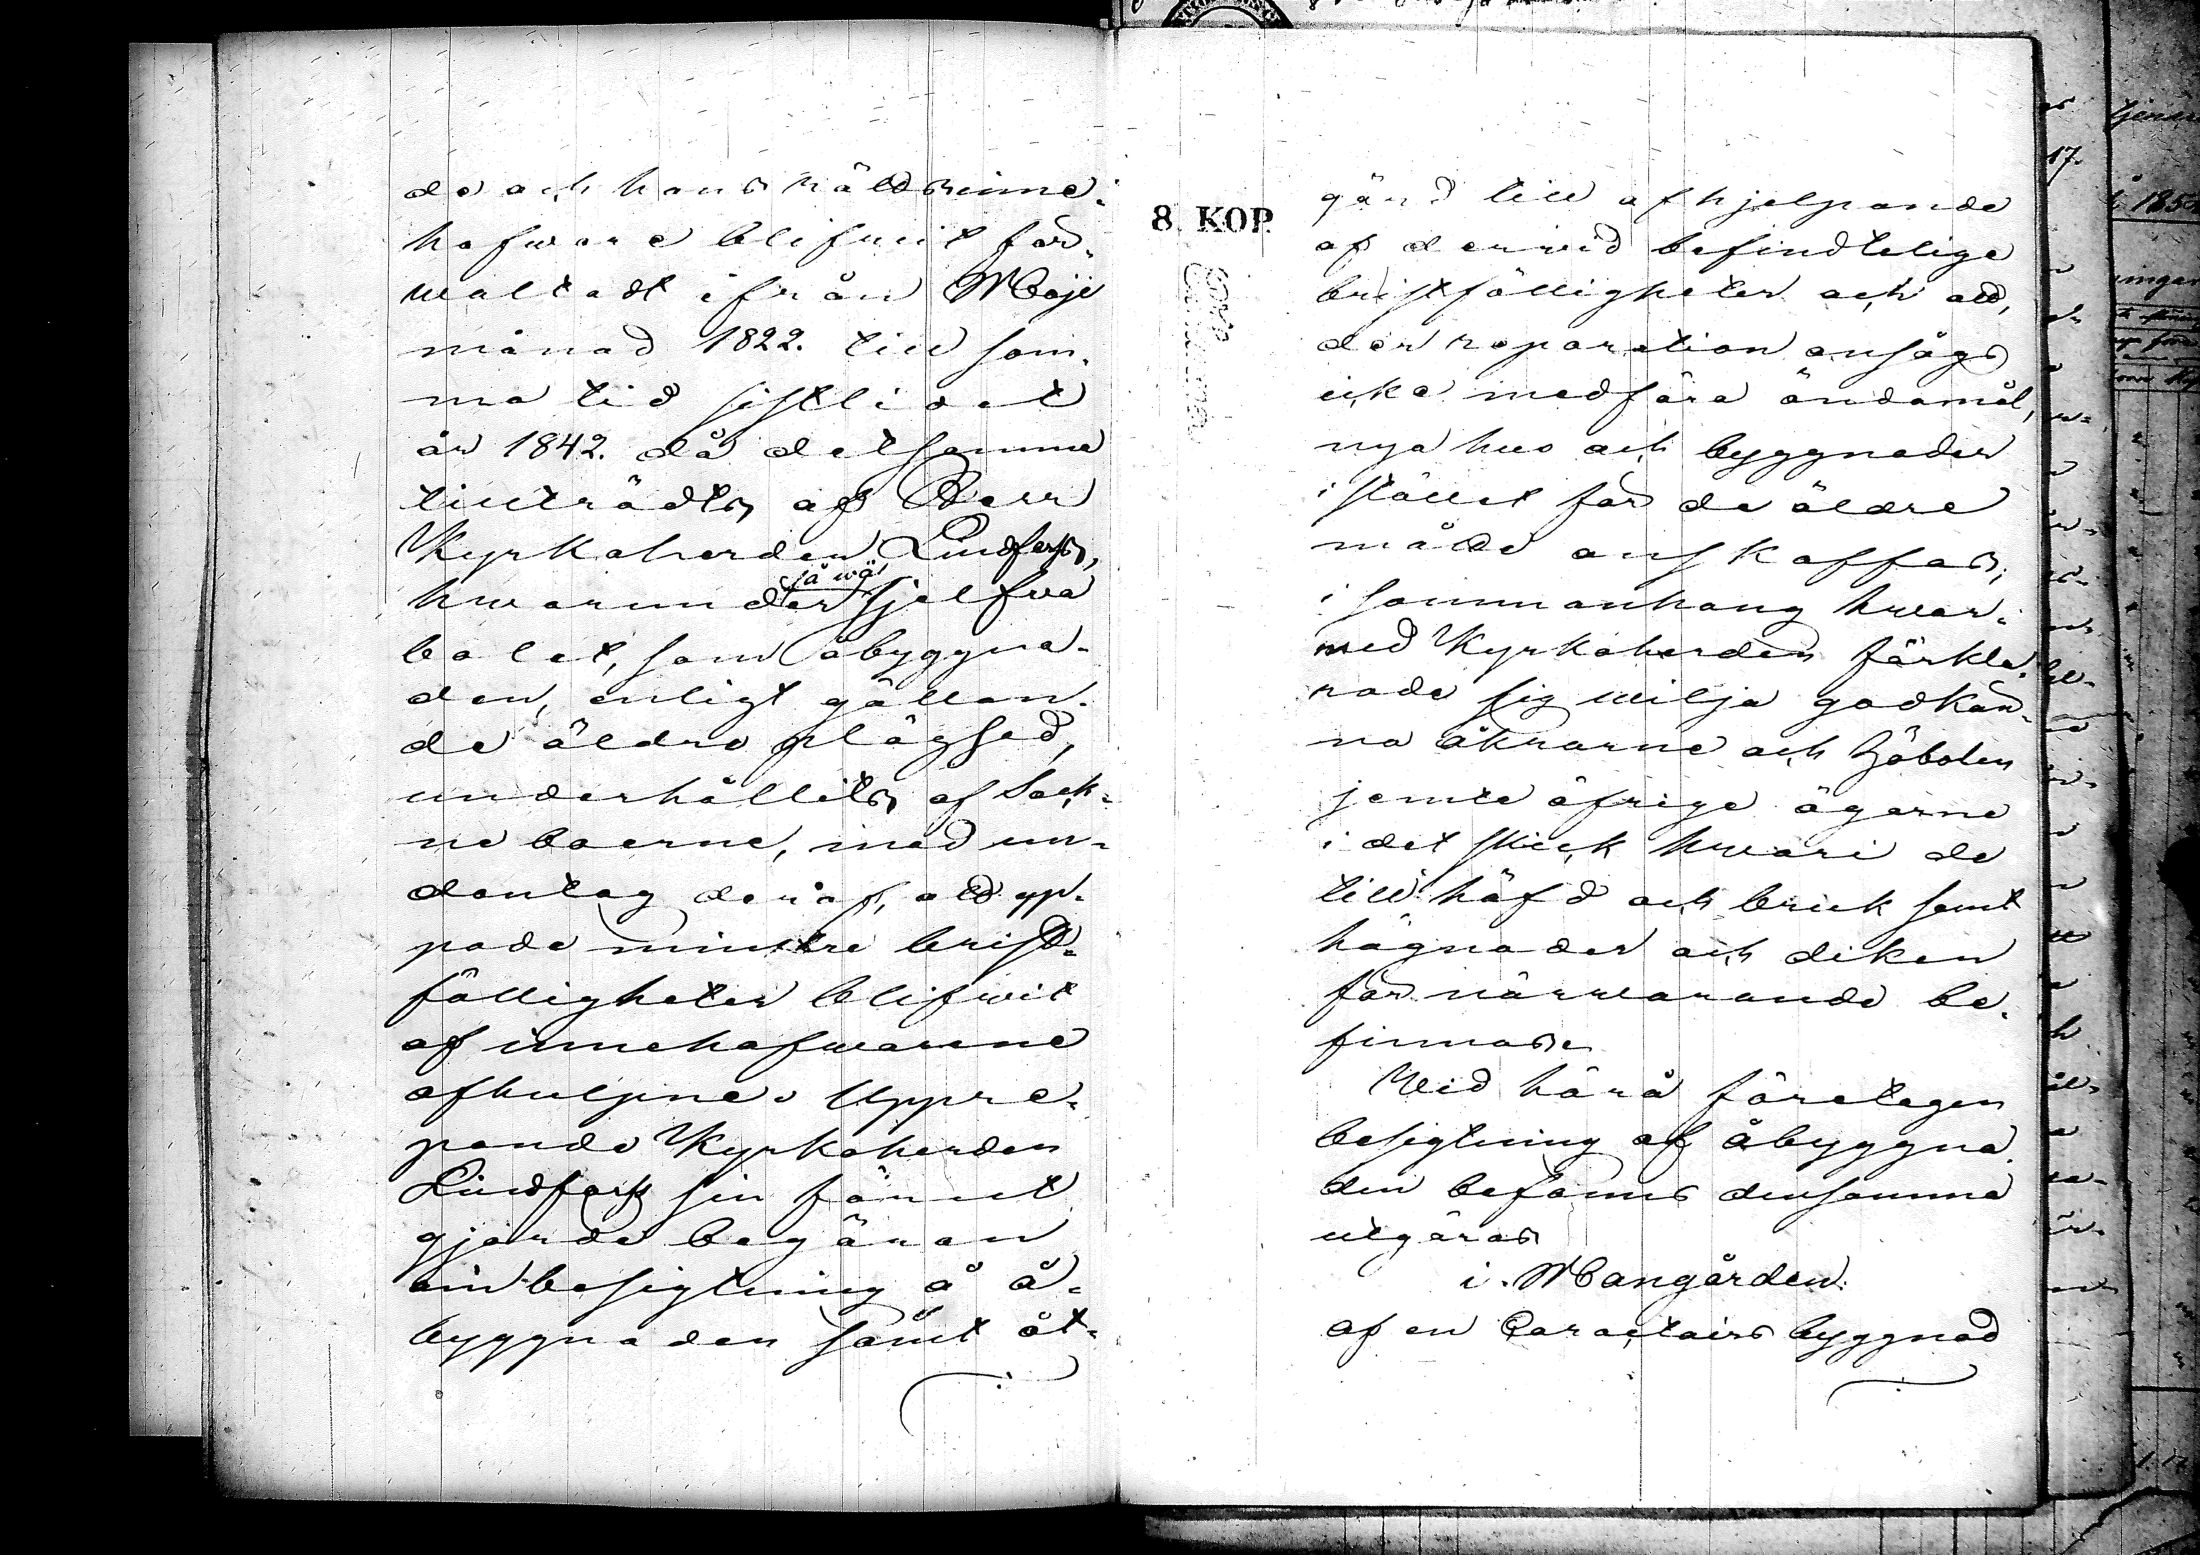 de och hans rättsinne-
hafware blifwit för-
waltadt ifrån Maji
månad 1822. till sam-
ma tid sistlidet
år 1842. då detsamma
tillträdts af Herr
Kyrkoherden Lindfors,
hwarunder såwäl sjelfwa
bolet, som åbyggna-
den, enligt gällan-
de äldre plägsed,
underhållits af Sock-
ne boerne, med un-
dantag deraf, att yp-
pade mindre brist-
fälligheter blifwit
af innehafwarene
afhulpne. Uppre-
pande Kyrkoherden
Lindfors sin förut
gjorde begäran
om besigtning å å-
byggnaden samt åt-
8. KOP.
gärd till afhjelpande
af derwid befindtelige
bristfälligheter och att,
der reparation ansågs
icke medföra ändamål,
nya hus och byggnader
i stället för de äldre
måtte anskaffas;
i sammanhang hwar-
med Kyrkoherden förkla-
rade sig wilja godkän-
na åkrarne och Höbolen
jemte öfrige ägorne
i det skick hwari de
till häfd och bruk samt
hägnader och diken
för närwarande be-
finnas.
Wid härå företagen
besigtning af åbyggna-
den befanns densamma
utgöras
i Mangården.
af en Caractairs byggnad